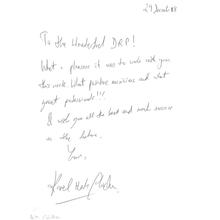 To the Wonderful D.R.P!
What a pleasure it was to work with you
this week. What positive musicians and what
great professionals!!!
I wish you all the best and much success
in the future.
Yours,